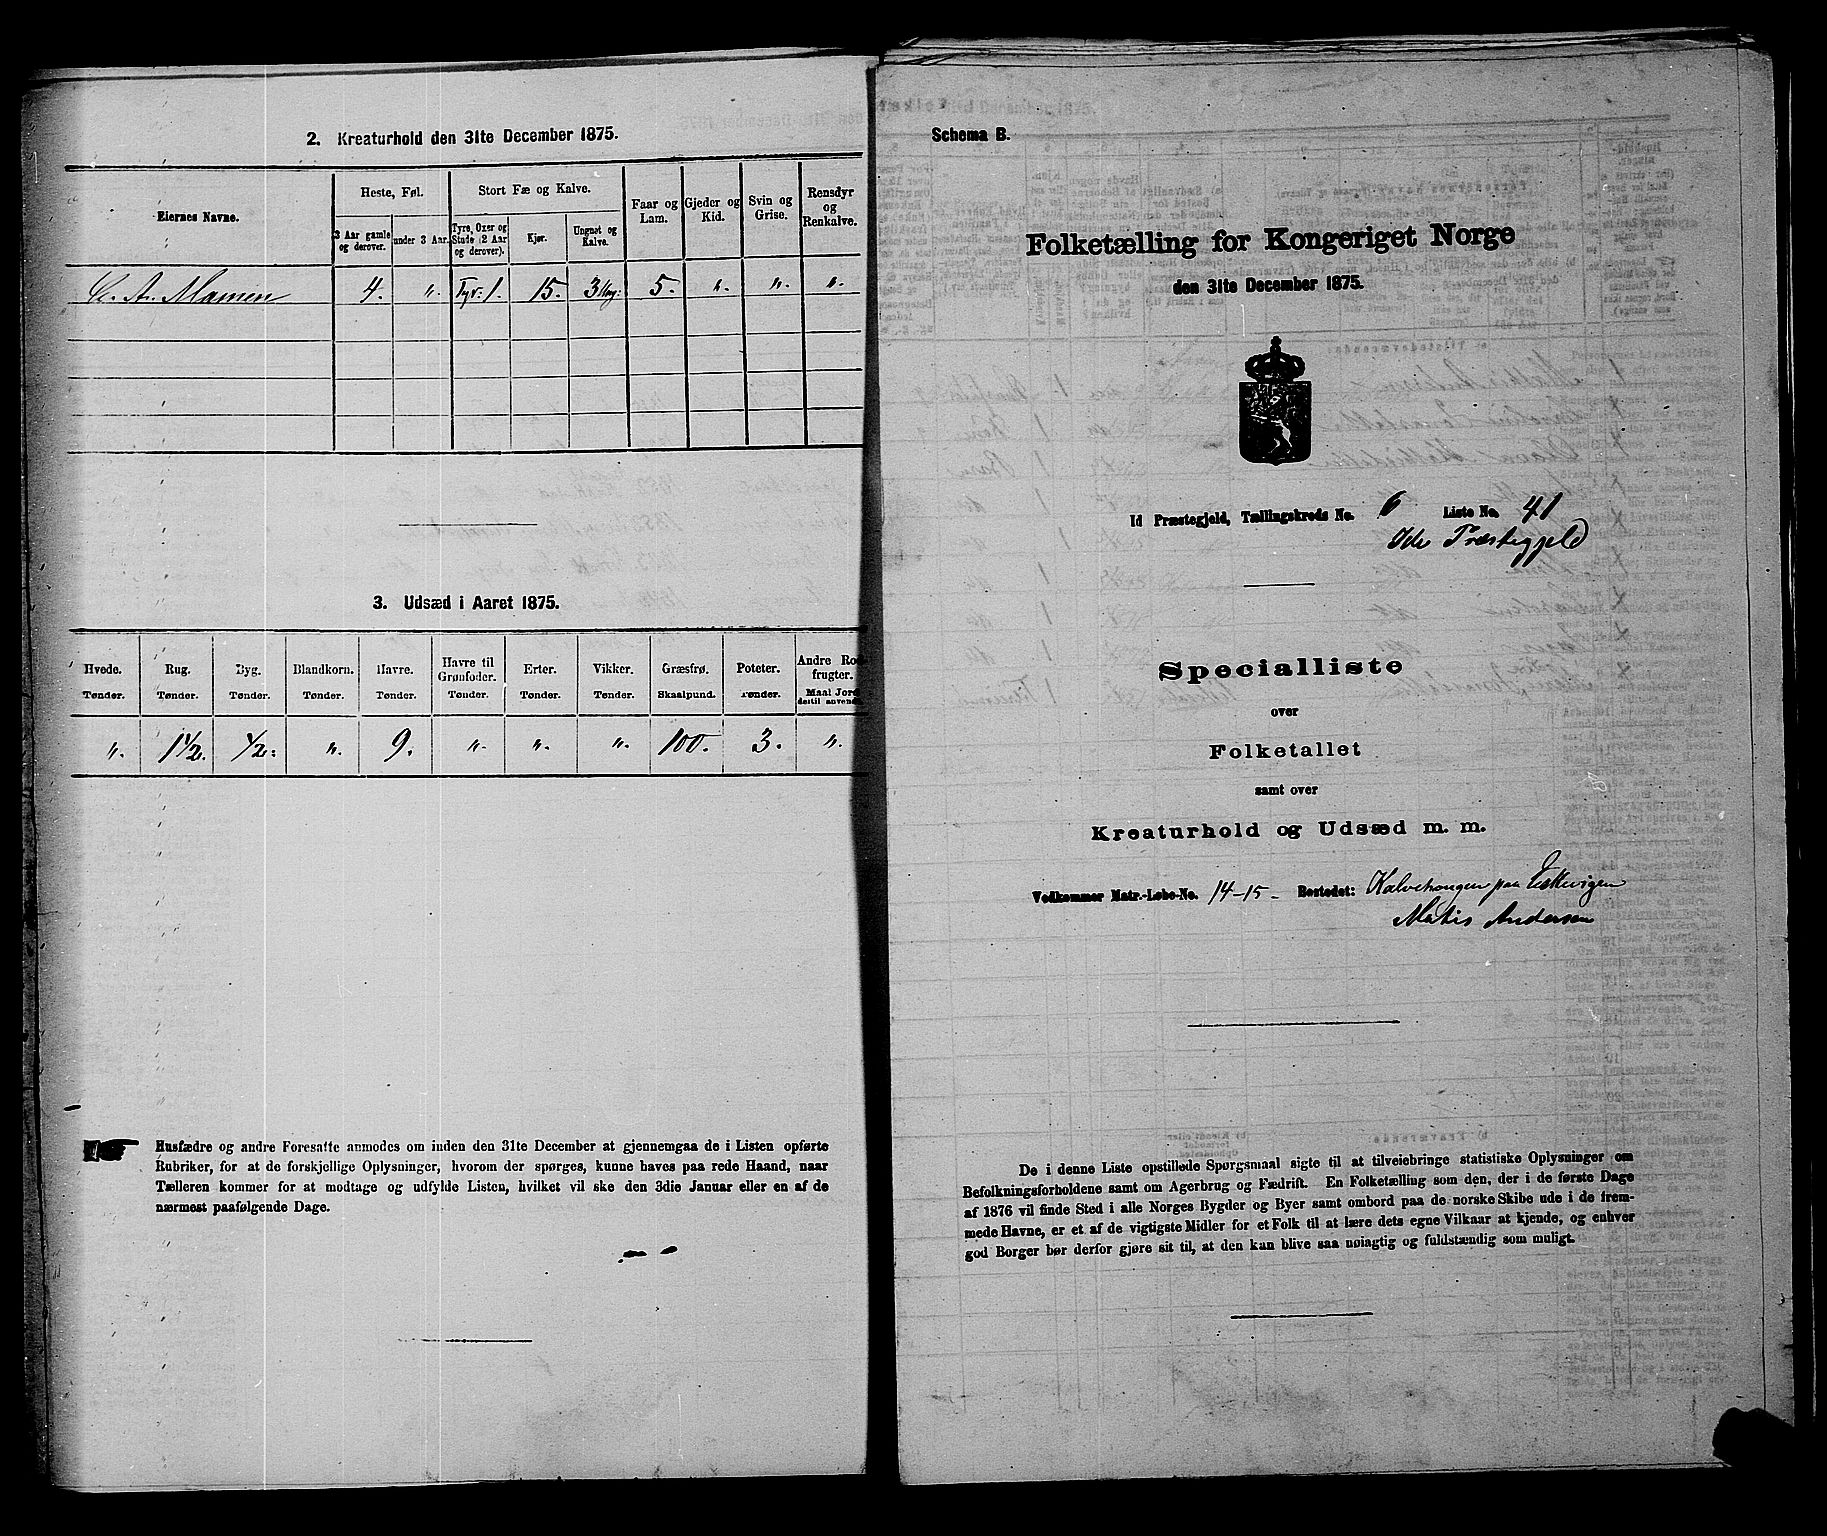 2. Kreaturhold den 31te December 1875.
Eiernes Navne.
Heste, Føl.
Stort Fæ og Kalve.
Faar og Lam.
Gjeder og Kid.
Svin og Grise.
Rensdyr og Renkalve.
3 Aar gamle og derover.
under 3 Aar.
Tyre, Oxer og Stude (2 Aar og derover).
Kjør.
Ungnøt og Kalve.
Mamen 4. „. Tyr. 1. 15. 3 5. „. „. „.
3. Udsæd i Aaret 1875.
Hvede. Rug. Byg. Blandkorn. Havre. Havre til Grønfoder. Erter. Vikker. Græsfrø. Poteter. Andre Rodfrugter.
Tønder. Tønder. Tønder. Tønder. Tønder. Tønder. Tønder. Tønder. Skaalpund. Tønder. Maal Jord dertil anvendt
„. 1 1/2. 1/2. „. 9. „. „. „. 100. 3. „.
Husfædre og andre Foresatte anmodes om inden den 31te December at gjennemgaa de i Listen opførte
Rubriker, for at de forskjellige Oplysninger, hvorom der spørges, kunne haves paa rede Haand, naar
Tælleren kommer for at modtage og udfylde Listen, hvilket vil ske den 3die Januar eller en af de
nærmest paafølgende Dage.
Schema B.
Folketælling for Kongeriget Norge
den 31te December 1875.
Id Præstegjeld, Tællingskreds No. 6 Liste No. 41
Ide Præstegjeld
Specialliste
over
Folketallet
samt over
Kreaturhold og Udsæd m. m.
Vedkommer Matr.-Løbe-No. 14-15- Bostedet: Kalvehougen paa Eskevigen
Matis Andersen
De i denne Liste opstillede Spørgsmaal sigte til at tilveiebringe statistiske Oplysninger om
Befolkningsforholdene samt om Agerbrug og Fædrift. En Folketælling som den, der i de første Dage
af 1876 vil finde Sted i alle Norges Bygder og Byer samt ombord paa de norske Skibe ude i de frem-
mede Havne, er et af de vigtigste Midler for et Folk til at lære dets egne Vilkaar at kjende, og enhver
god Borger bør derfor gjøre sit til, at den kan blive saa nøiagtig og fuldstændig som muligt.